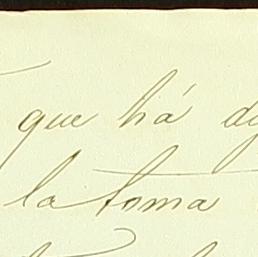 que há
la toma